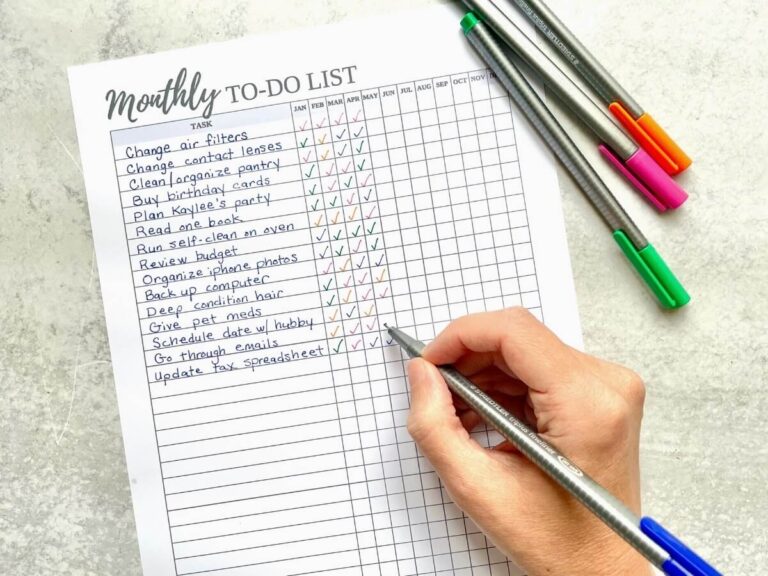 Monthly TO-DO LIST
TASK JAN FEB MAR APR MAY JUN JUL AUG SEP OCT NOV
Change air filters
Change contact lenses
Clean/organize pantry
Buy birthday cards
Plan Kaylee's party
Read one book
Run self-clean on oven
Review budget
Organize iphone photos
Back up computer
Deep condition hair
Give pet meds
Schedule date w/ hubby
Go through emails
Update tax spreadsheet
STAEDTLER